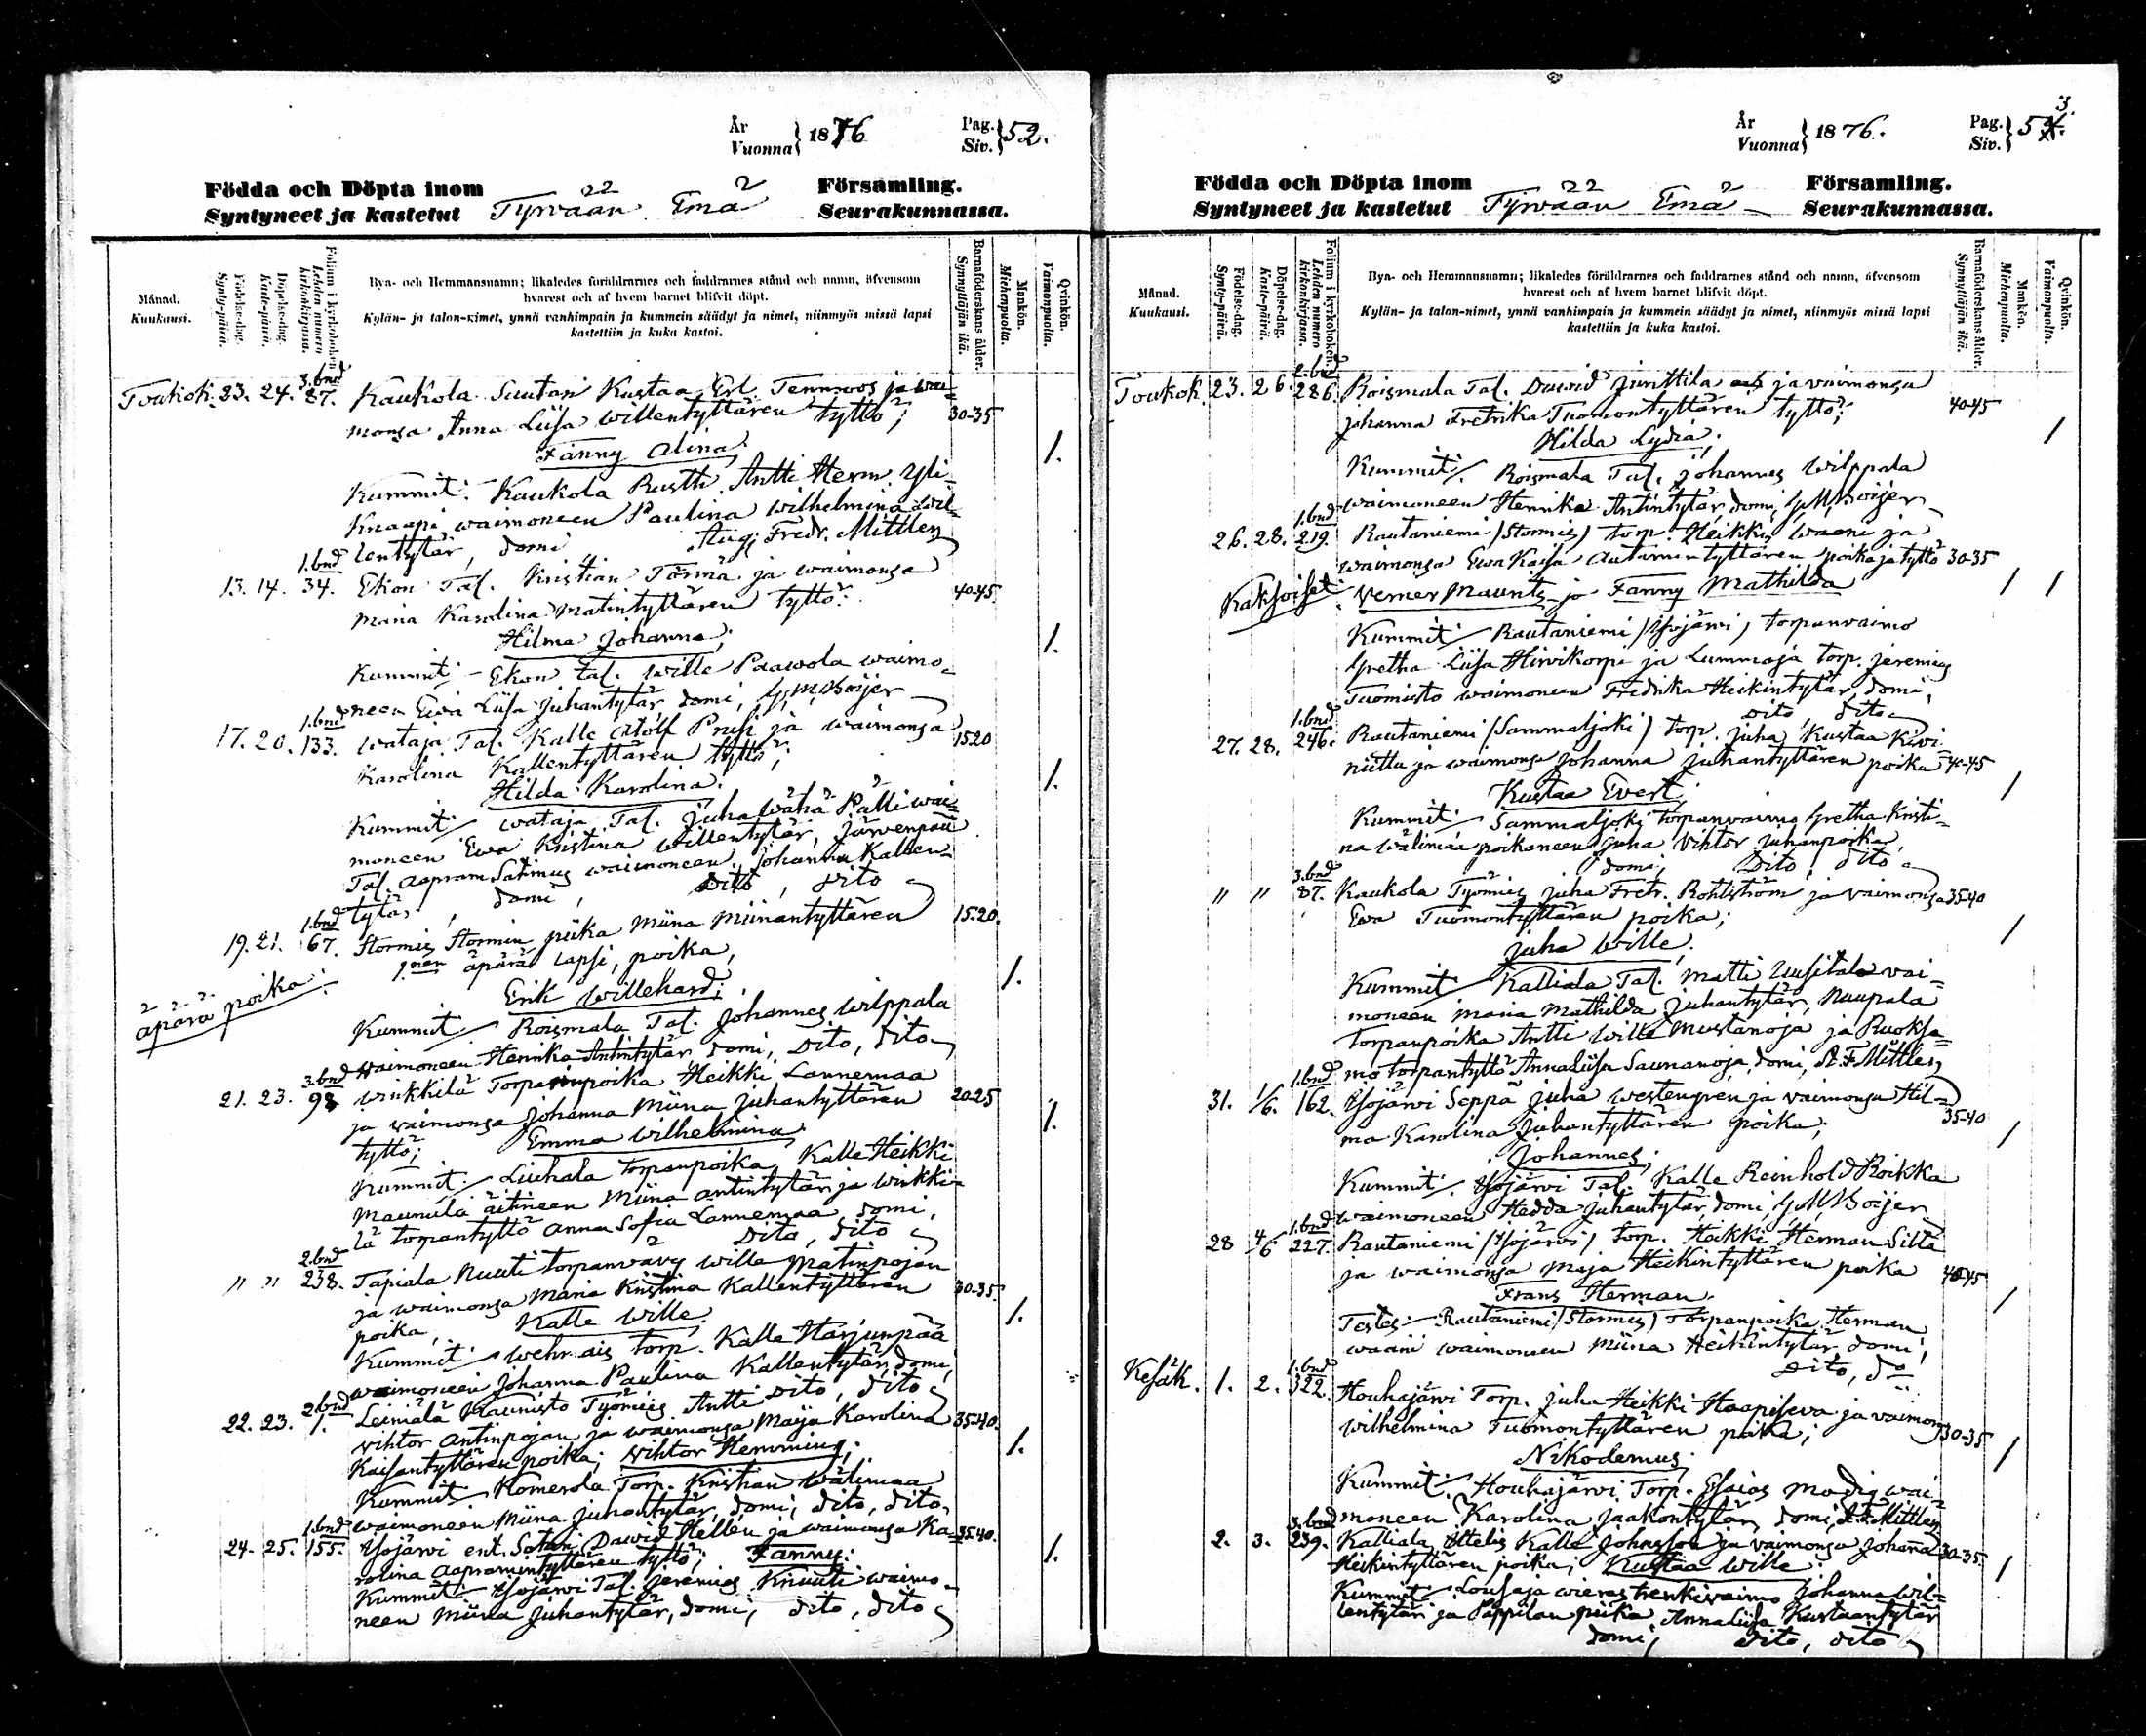 År
Vuonna } 1876
Pag.
Siv. } 52.
Födda och Döpta inom
Syntyneet ja kastetut Tyrvään Emä Församling.
Seurakunnassa.
Månad.
Kuukausi.
Födelse-dag.
Synty-päivä.
Döpelse-dag.
Kaste-päivä.
Folium i kyrkoboken.
Lehden numero kirkonkirjassa.
Bya- och Hemmansnamn; likaledes föräldrarnes och faddrarnes stånd och namn, äfvensom
hvarest och af hvem barnet blifvit döpt.
Kylän- ja talon-nimet, ynnä vanhimpain ja kummein säädyt ja nimet, niinmyös missä lapsi
kastettiin ja kuka kastoi.
Barnaföderskans ålder.
Synnyttäjän ikä.
Mankön.
Miehenpuolta.
Qvinkön.
Vaimonpuolta.
Toukok. 23. 24. 3.bnd 87. Kaukola Suutari Kustaa Erl. Tennroos ja wai-
monsa Anna Liisa Willentyttären tyttö; 30-35
Fanny Alina. 1.
Kummit: Kaukola Rustti Antti Herm. Yli-
Knaapi waimoneen Paulina Wilhelmina Wil-
lentytär, domi Aug. Fredr. Mittler
13. 14. 1.bnd 34. Ekon Tal. Kristian Törmä ja waimonsa
Maria Karolina Matintyttären tyttö: 40-45.
Hilma Johanna; 1.
Kummit: Ekon tal. Wille Paawola waimo-
neen Ewa Liisa Juhantytär domi, G. M. Boijer
17. 20. 1.bnd 133. Wataja Tal. Kalle Atolf Prusi ja waimonsa 15-20
Karolina Kallentyttären tyttö;
Hilda Karolina. 1.
Kummit: Wataja Tal. Juha Wähä Pälli wai-
moneen Ewa Kristina Willentytär, Järvenpää
Tal. Aapram Satimus waimoneen Johanna Kallen-
tytär, domi, Dito, Dito
19. 21. 1.bnd 67. Stormis Stormin piika Miina Miinantyttären 15-20.
1.nen äpärä lapsi, poika,
äpärä poika
Erik Willehard; 1.
Kummit: Roismala Tal. Johannes Wilppala
waimoneen Henrika Antintytär domi, Dito, Dito
21. 23. 3.bnd 98 Winkkilä Torpanpoika Heikki Lannemaa
ja waimonsa Johanna Miina Juhantyttären 20-25
tyttö; Emma Wilhelmina. 1.
Kummit: Liuhala torpanpoika Kalle Heikki
Maunula äitineen Miina Antintytär ja Winkki-
lä torpantyttö Anna Sofia Lannemaa domi,
Dito, Dito
" " 2.bnd 238. Tapiala Nuuti torpanvävy Wille Matinpojan
ja waimonsa Maria Kristina Kallentyttären 30-35.
poika, Kalle Wille. 1.
Kummit: Wehmais torp. Kalle Harjunpää
waimoneen Johanna Paulina Kallentytär, domi,
Dito, Dito
22. 23. 2.bnd 1. Leiniälä Kaunisto Työmies Antti
Vihtor Antinpojan ja waimonsa Maija Karolina 35-40.
Kaisantyttären poika; Vihtor Hemming; 1.
Kummit: Komerola Torp. Kristian Wälimaa
waimoneen Miina Juhantytär, domi, Dito, Dito,
24. 25. 1.bnd 155. Ysojärvi ent. Sotari Dawid Hellén ja waimonsa Ka- 35-40.
rolina Aapramintyttären tyttö; Fanny: 1.
Kummit: Ysojärvi Tal. Jeremias Knuuti waimo-
neen Miina Juhantytär, domi, dito, dito
År
Vuonna } 1876.
Pag.
Siv. } 53.
Födda och Döpta inom
Syntyneet ja kastetut Tyrvään Emä Församling.
Seurakunnassa.
Månad.
Kuukausi.
Födelse-dag.
Synty-päivä.
Döpelse-dag.
Kaste-päivä.
Folium i kyrkoboken.
Lehden numero kirkonkirjassa.
Bya- och Hemmansnamn; likaledes föräldrarnes och faddrarnes stånd och namn, äfvensom
hvarest och af hvem barnet blifvit döpt.
Kylän- ja talon-nimet, ynnä vanhimpain ja kummein säädyt ja nimet, niinmyös missä lapsi
kastettiin ja kuka kastoi.
Barnaföderskans ålder.
Synnyttäjän ikä.
Mankön.
Miehenpuolta.
Qvinkön.
Vaimonpuolta.
Toukok. 23. 26. 2.bnd 286. Roismala Tal. Dawid Junttila ja vaimonsa
Johanna Fredrika Tuomontyttären tyttö; 40-45
Hilda Lydia; 1
Kummit: Roismala Tal. Johannes Wilppala
waimoneen Henrika Antintytär, domi, G. M. Boijer
26. 28. 1.bnd 219. Rautaniemi (Stormis) torp. Heikki Waani ja
waimonsa Ewa Kaisa Antamintyttären poika ja tyttö 30-35
Kaksoiset Verner Maunits ja Fanny Mathilda 1 1
Kummit: Rautaniemi (Ysojärvi) torpanvaimo
Gretha Liisa Hirvikorpi ja Lummaja torp. Jeremias
Tuomisto waimoneen Fredrika Heikintytär, domi,
Dito, Dito
27. 28. 1.bnd 246. Rautaniemi (Sammaljoki) torp. Juha Kustaa Kivi-
niittu ja waimonsa Johanna Juhantyttären poika 40-45
Kustaa Evert; 1
Kummit: Sammaljoki torpanvaimo Gretha Kristi-
na Wälimää poikaneen Juha Vihtor Juhanpoika,
domi, Dito, Dito
" " 3.bnd 87. Kaukola Työmies Juha Fredr. Rohtström ja vaimonsa 35-40
Ewa Tuomontyttären poika;
Juha Wille. 1
Kummit: Kalliala Tal. Matti Uusitalo vai-
moneen Maria Mathilda Juhantytär, Nuupala
torpanpoika Antti Wille Mustanoja ja Ruoksa-
mo torpantyttö Annaliisa Saunanoja, domi, A. F. Mittler
31. 1/6. 1.bnd 162. Ysojärvi Seppä Juha Westengren ja vaimonsa Hil-
ma Karolina Juhantyttären poika; 35-40
Johannes; 1
Kummit: Ysojärvi Tal. Kalle Reinhold Roikka
waimoneen Hedda Juhantytär, domi, G. M. Boijer
28 4/6 1.bnd 227. Rautaniemi (Ysojärvi) torp. Heikki Herman Silta
ja waimonsa Maja Heikintyttären poika 40-45
Frans Herman. 1
Testes: Rautaniemi (Stormis) Torpanpoika Herman
Waani waimoneen Miina Heikintytär domi;
Dito, Do
Kesäk. 1. 2. 1.bnd 322. Houhajärvi Torp. Juha Heikki Haapiseva ja vaimons
Wilhelmina Tuomontyttären poika; 30-35
Nikodemus; 1
Kummit: Houhajärvi Torp. Esaias Modig wai-
moneen Karolina Jaakontytär, domi, A. F. Mittler
2. 3. 3.bnd 239. Kalliala Ittelis Kalle Johansson ja vaimonsa Johanna 30-35.
Heikintyttären poika; Kustaa Wille. 1
Kummit: Lousaja wieras trenkivaimo Johanna Wil-
lentytär ja Pappilan piika Annaliisa Kustaantytär
domi, dito, dito